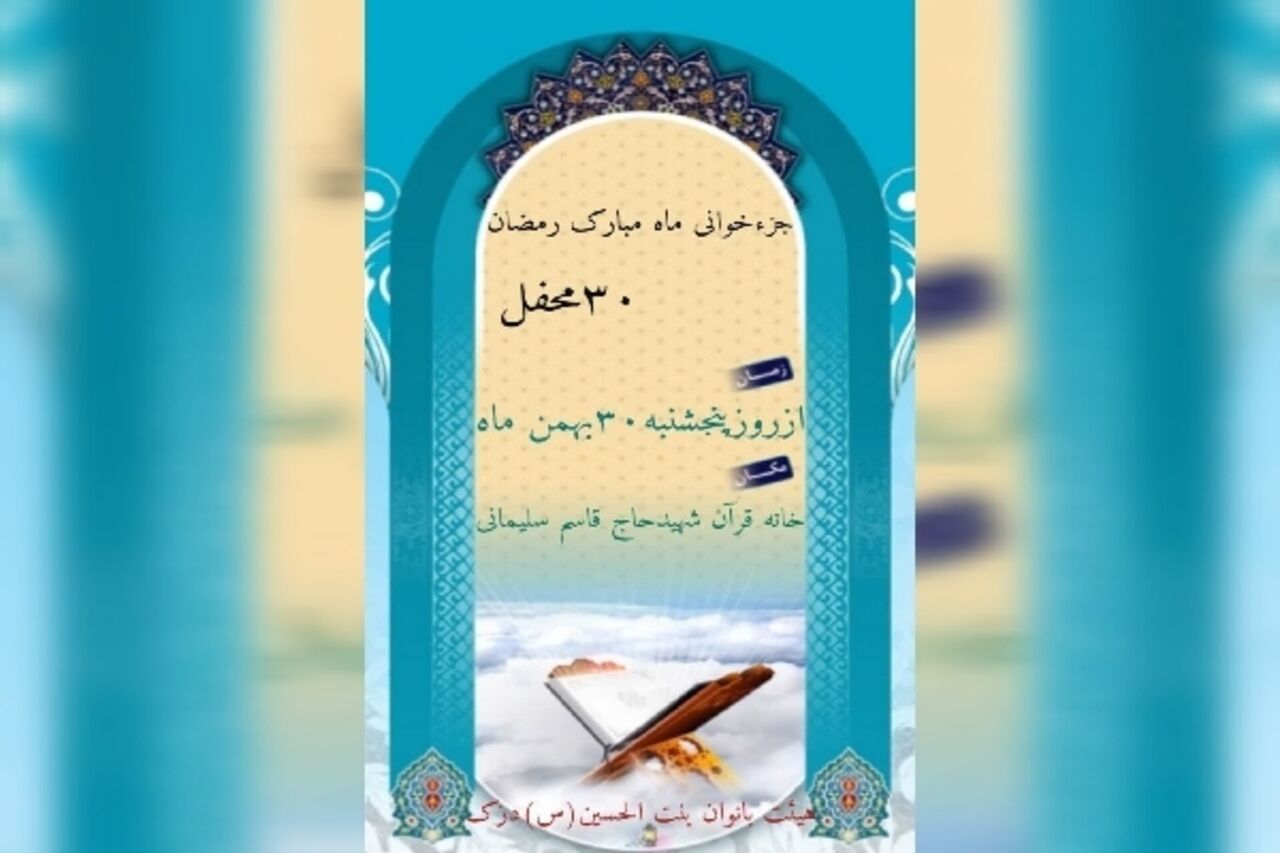 جزءخوانی ماه مبارک رمضان
۳۰محفل
زمان
ازروزپنجشنبه۳۰بهمن ماه
مکان
خانه قرآن شهیدحاج قاسم سلیمانی
هیئت بانوان بنت الحسین(س)دزک